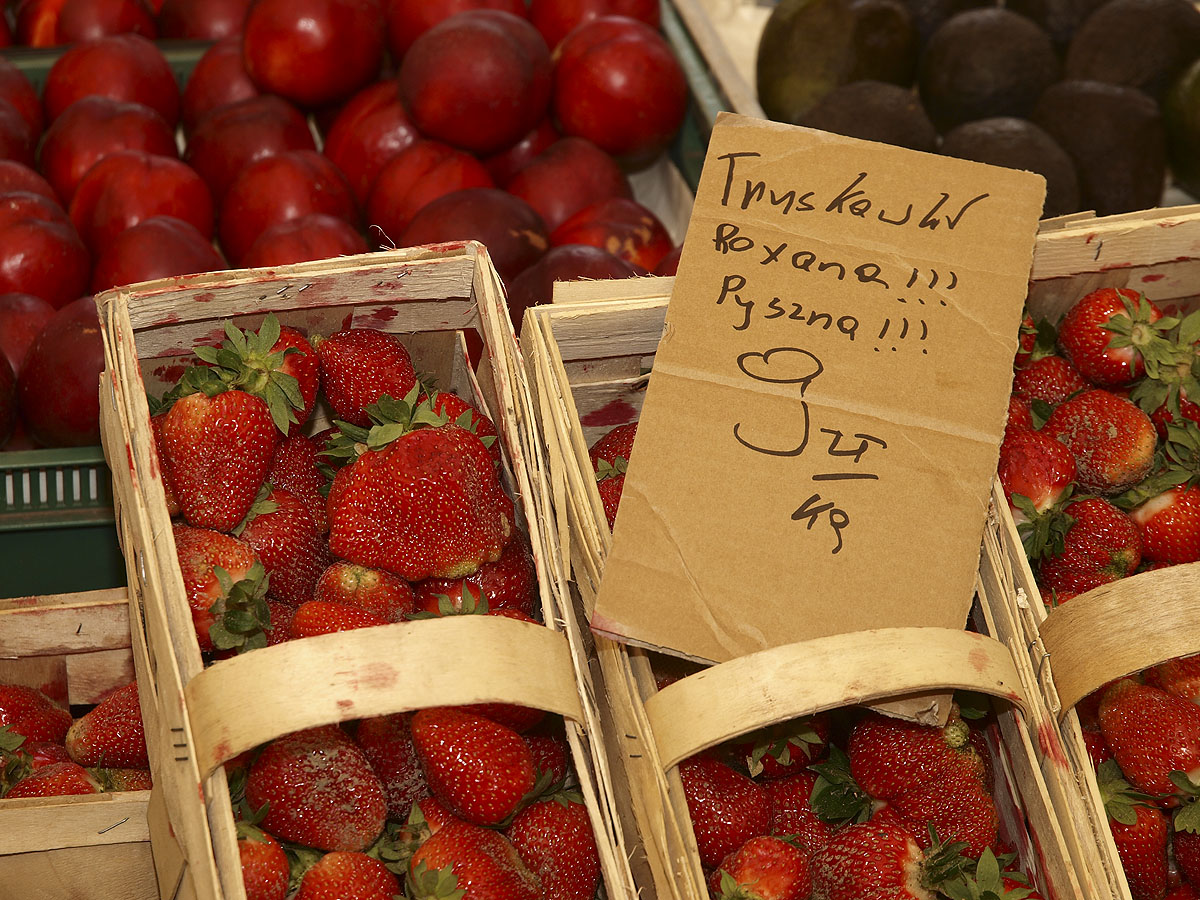 Truskawki
Roxana!!!
Pyszna!!!
9 zł
kg